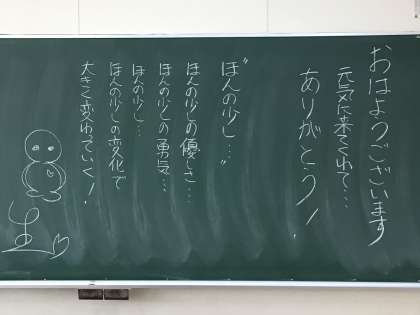 おはようございます
元気に来てくれて…
ありがとう!
"ほんの少し…"
ほんの少しの優しさ…
ほんの少しの勇気…
ほんの少し…
ほんの少しの変化で
大きく変わっていく!